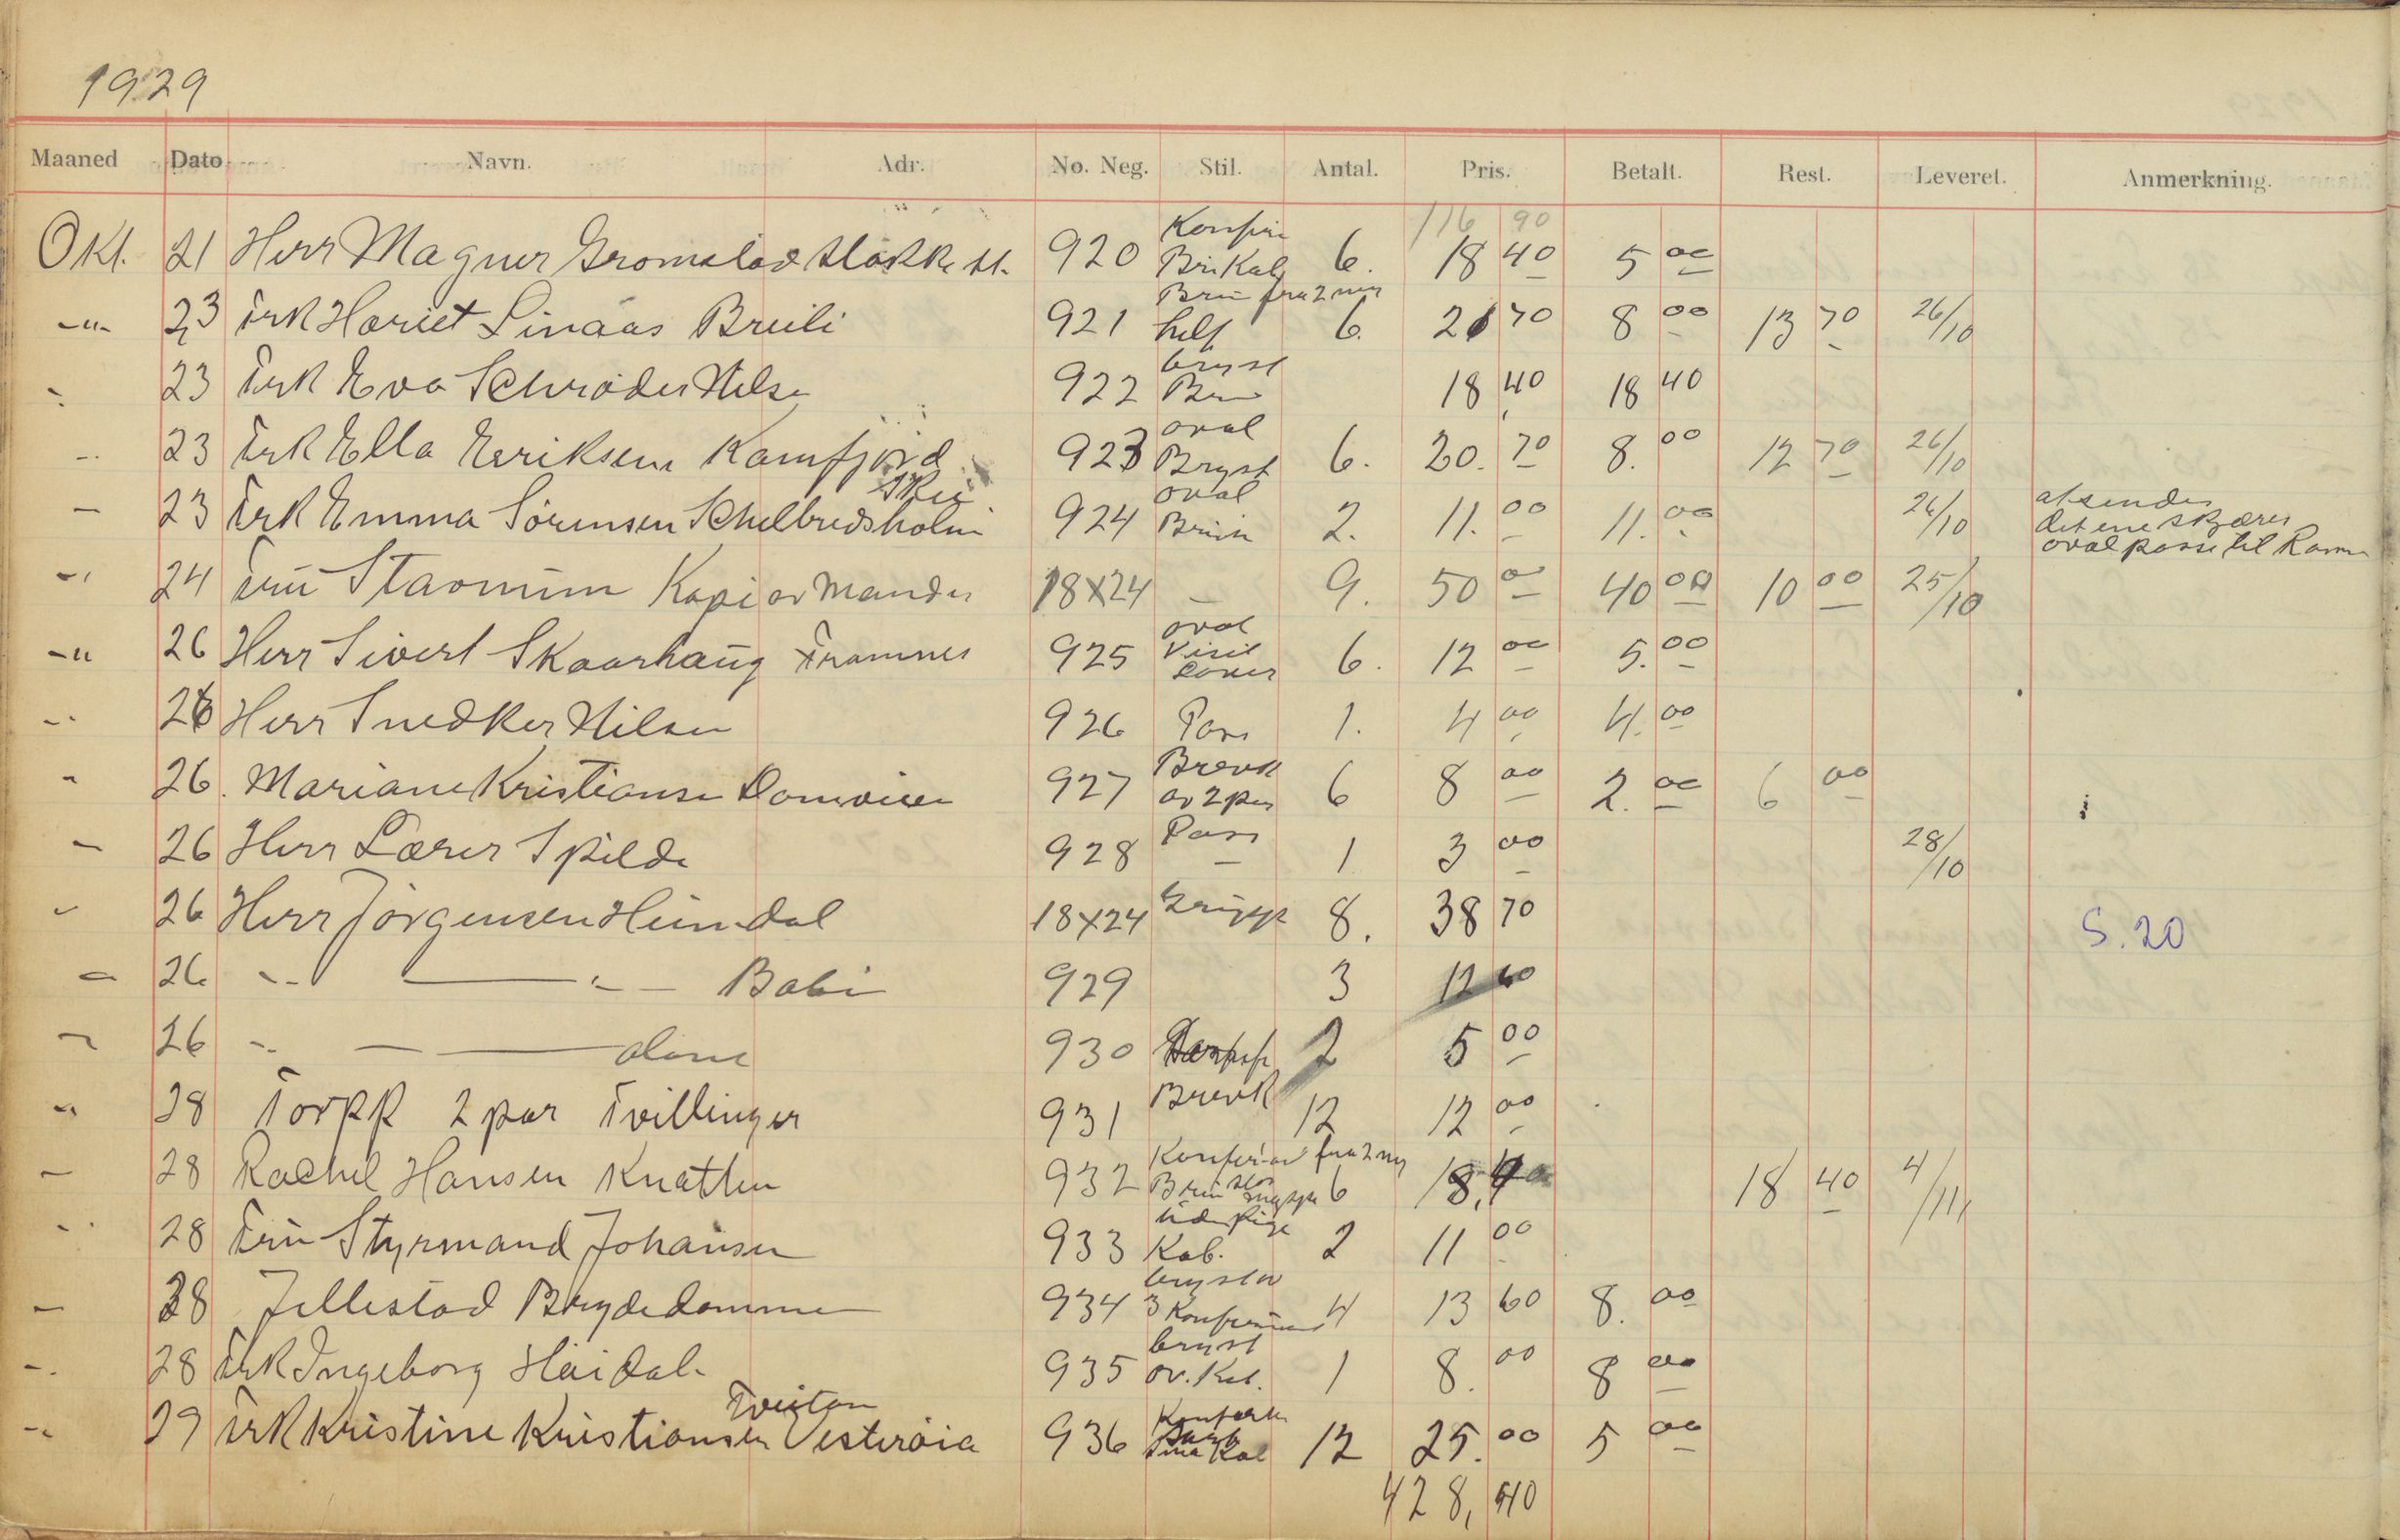 1929
Maaned Dato Navn. Adr. No. Neg. Stil. Antal. Pris. Betalt. Rest. Leveret. Anmerkning.
116 90
Okt. 21 Herr Magner Gromstad 920 Konfir Br. Kab 6. 18 40 5 00
-"- 23 Frk Hariet Linaas Breili 921 Brun fra 2 neg helf 6. 21 70 8 00 13 70 26/10
23 Frk Eva Schrøder Nilse 922 bryst Brun 18 40 18 40
-- 23 Frk Ella Eeriksen Kamfjord 923 oval Bryst 6. 20. 70 8. 00 12 70 26/10
Skii
— 23 Frk Emma Sörensen Schelbredsholm 924 oval Brun 2. 11. 00 11. 00 26/10 afsendes
det ene skjæres
oval passe til Ramme
-" 24 Fru Stavnum Kopi av Manden 18x24 — 9. 50 00 40 00 10 00 25/10
-" 26 Herr Sivert Skaarhaug Framnes 925 oval Visit 6. 12 00 5. 00
-- 26 Herr Snedker Nilsen 926 Pass 1. 4 00 4. 00
- 26. Mariane Kristiansen 927 Brevk av 2 per 6 8 00 2. 00 6 00
— 26 Herr Lærer Spilde 928 Pass — 1 3 00 28/10
26 Herr Jörgensen Heimdal 18x24 Gruppe 8. 38 70 S. 20
— 26 -- — -- — Babi 929 3 12 60
26 -- — — alene 930 2 5 00
" 28 Torpp 2 par Tvillinger 931 Brevk 12 12 00
— 28 Rachel Hansen Knatten 932 Konfir av fra 2 neg Brun 6 18,40 18 40 4/11
-- 28 Fru Styrmand Johansen 933 Kab. 2 11 00
— 28 Jellestad Brydedammen 934 bryst av 3 Konfirmand 4 13 60 8. 00
-- 28 Frk Ingeborg Häidal. 935 bryst ov. Kab. 1 8. 00 8 00
Tveitan
-- 29 Frk Kristine Kristiansen Vesteröia 936 Kab 12 25. 00 5 00
428, 40